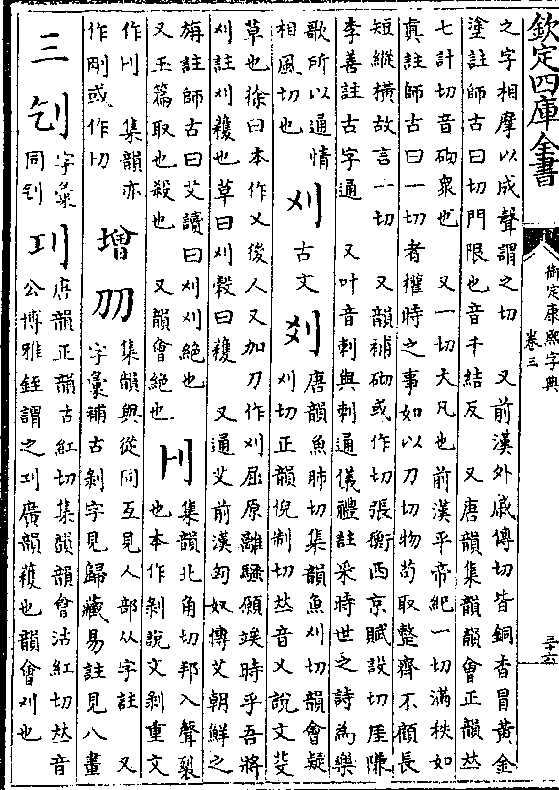 欽定四庫全書
御定康熙字典
卷三
三十六
之字相摩以成聲謂之切　又前漢外戚傳切皆銅沓冒黃金
塗註師古曰切門限也音千結反　又唐韻集韻韻會正韻𠀤
七計切音砌衆也　又一切大凡也前漢平帝紀一切滿秩如
真註師古曰一切者權時之事如以刀切物苟取整齊不顧長
短縱橫故言一切　又韻補砌或作切張衡西京賦設切厓隒
李善註古字通　又叶音刺與刺通儀禮註采時世之詩為樂
歌所以通情
相風切也
刈
古文
唐韻魚肺切集韻魚刈切韻會疑
刈切正韻倪制切𠀤音乂說文芟
草也徐曰本作乂後人又加刀作刈屈原離騷願竢時乎吾將
刈註刈穫也草曰刈穀曰穫　又通艾前漢匈奴傳艾朝鮮之
旃註師古曰艾讀曰刈刈絕也
又玉篇取也殺也　又韻會絕也
刂
集韻北角切邦入聲裂
也本作剝說文剝重文
作刂　集韻亦
作刚或作
增
集韻與從同互見人部从字註　又
字彙補古剝字見歸藏易註見八畫
三
字彙
同刉
㓚
唐韻正韻古紅切集韻韻會沽紅切𠀤音
公博雅銍謂之㓚廣韻穫也韻會刈也